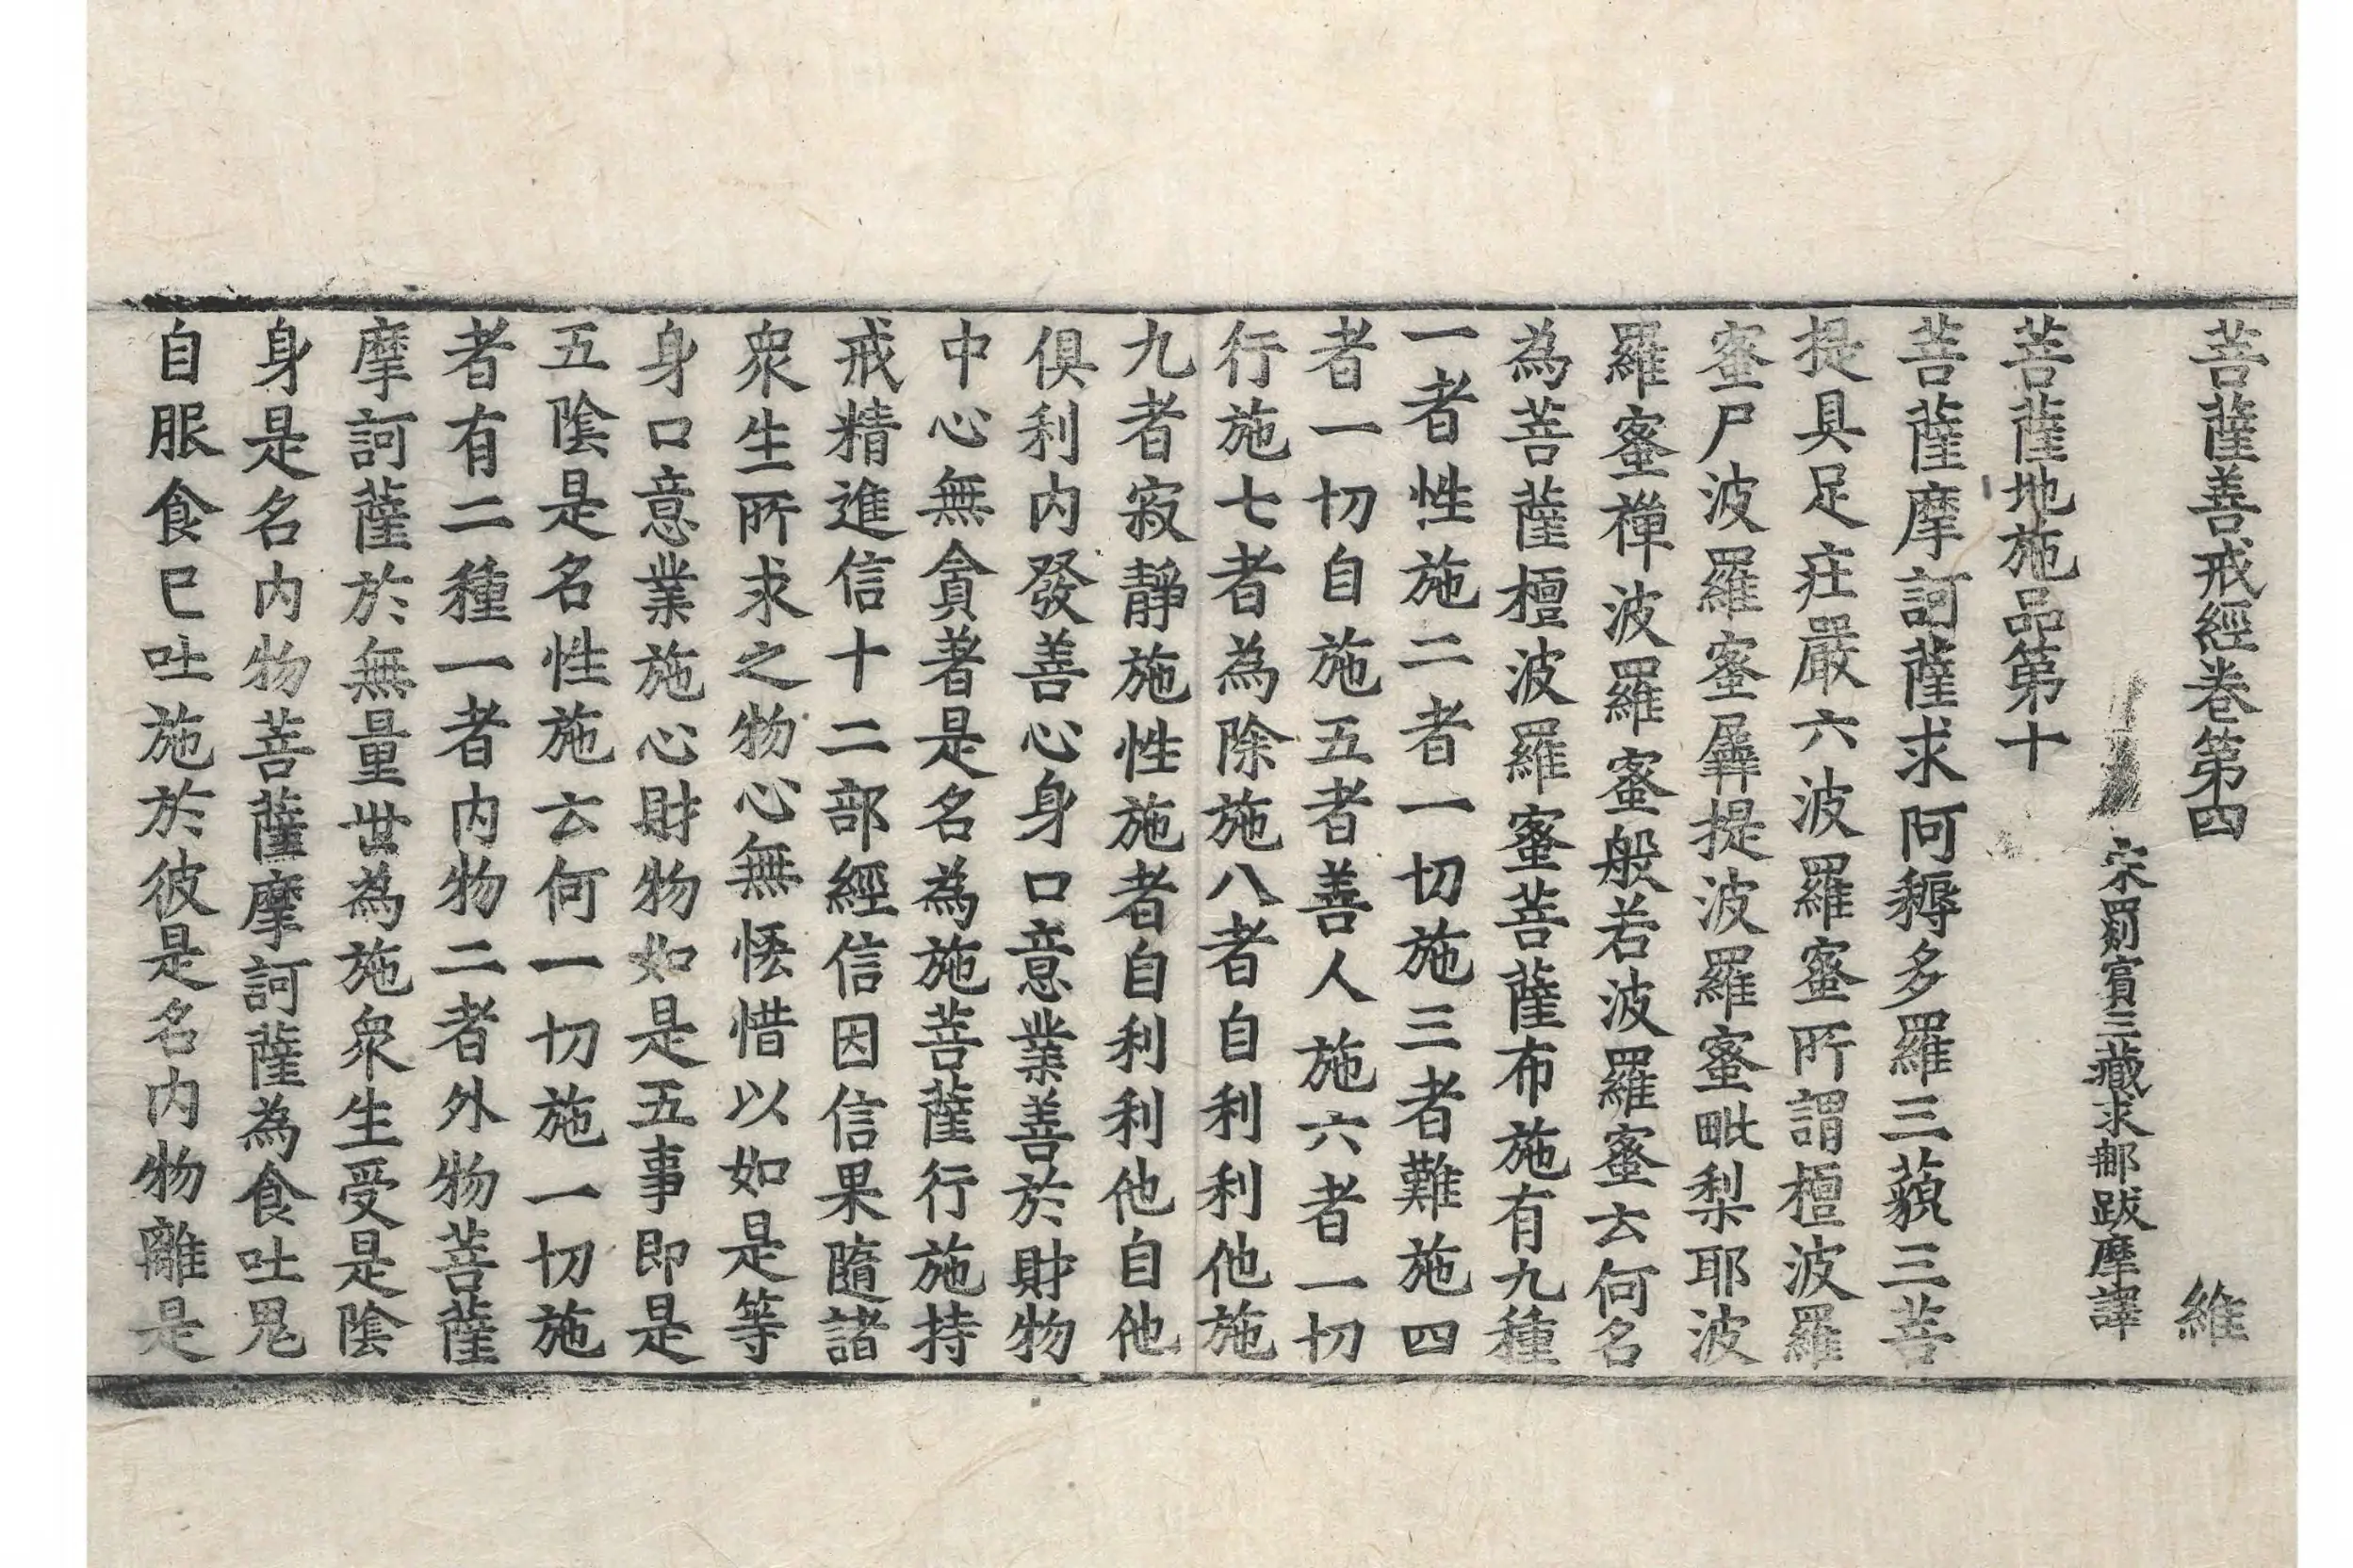 菩薩善戒經卷第四 維
宋罽賓三藏求那跋摩譯
菩薩地施品第十
菩薩摩訶薩求阿耨多羅三藐三菩
提具足莊嚴六波羅蜜所謂檀波羅
蜜尸波羅蜜羼提波羅蜜毗梨耶波
羅蜜禪波羅蜜般若波羅蜜云何名
為菩薩檀波羅蜜菩薩布施有九種
一者性施二者一切施三者難施四
者一切自施五者善人施六者一切
行施七者為除施八者自利利他施
九者寂靜施性施者自利利他自他
俱利內發善心身口意業善於財物
中心無貪著是名為施菩薩行施持
戒精進信十二部經信因信果隨諸
眾生所求之物心無悋惜以如是等
身口意業施心財物如是五事即是
五陰是名性施云何一切施一切施
者有二種一者內物二者外物菩薩
摩訶薩於無量世為施眾生受是陰
身是名內物菩薩摩訶薩為食吐鬼
自服食已吐施於彼是名內物離是